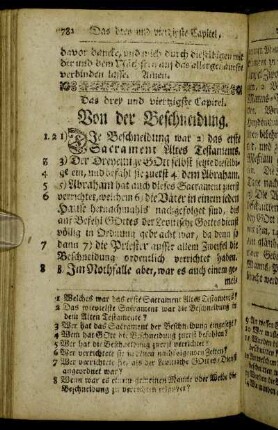 782 Das drey und vierzigste Capitel,
davor dancke, und mich durch dieselbigen mit
dir und dem Nächsten auf das allergenaueste
verbinden lasse. Amen.
Das drey und vierzigste Capitel.
Von der Beschneidung.
1. 2 1) Die Beschneidung war 2) das erste
Sacrament Altes Testaments.
3 3) Der Dreyeinige GOtt selbst setzte dieselbi-
4 ge ein, und befahl sie zuerst 4. dem Abraham.
5 5) Abraham hat auch dieses Sacrament zuerst
6 verrichtet, welchem 6) die Väter in einem jeden
Hause hernachmahls nachgefolget sind, bis
auf Befehl GOttes der Levitische Gottesdienst
völlig in Ordnung gebracht war, da denn
7 dann 7) die Priester ausser allem Zweifel die
Beschneidung ordentlich verrichtet haben.
8 8 Im Nothfalle aber, war es auch einem ge-
mei-
1 Welches war das erste Sacrament Altes Testaments?
2 Das wievielste Sacrament war die Beschneidung in
dem Alten Testamente?
3 Wer hat das Sacrament der Beschneidung eingesetzt?
4 Wem hat GOtt die Beschneidung zuerst befohlen?
5 Wer hat die Beschneidung zuerst verrichtet?
6 Wer verrichtete sie in denen nachfolgenden Zeiten?
7 Wer verrichtete sie, als der Levitische Gottes-Dienst
angeordnet war?
8 Wenn war es einem gemeinen Manne oder Weibe die
Beschneidung zu verrichten erlaubet?